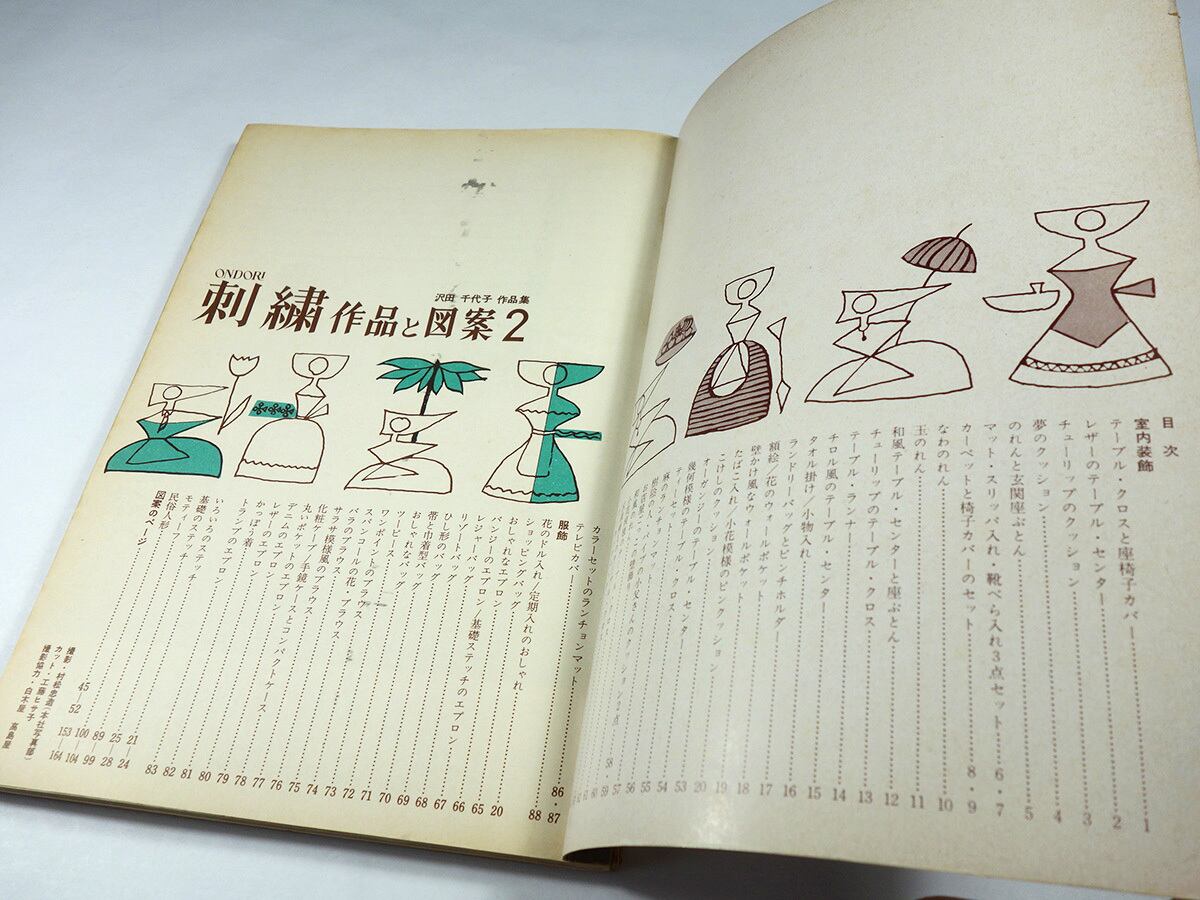 目次
室内装飾
テーブル・クロスと座椅子カバー 1
レザーのテーブル・センター 2
チューリップのクッション 3
夢のクッション 4
のれんと玄関座ぶとん 5
マット・スリッパ入れ・靴べら入れ3点セット 6・7
カーペットと椅子カバーのセット 8・9
なわのれん 10
玉のれん 11
和風テーブル・センターと座ぶとん 12
チューリップのテーブル・クロス 13
テーブル・ランナー 14
チロル風のテーブル・センター 15
タオル掛け/小物入れ 16
ランドリーバッグとピンチホルダー 17
額絵/花のウォールポケット 18
壁かけ風なウォールポケット
たばこ入れ/小花模様のピンクッション
こけしのクッション
オーガンジーのテーブル・センター
幾何模様のテーブル・クロス
ティーセット
麻のランチョンマット
ONDORI
刺繍 作品と図案2
沢田 千代子 作品集
カラーセットのランチョンマット
テレビカバー
服飾
花のドル入れ/定期入れのおしゃれ
ショッピングバッグ
おしゃれなエプロン
パンジーのエプロン
レジャーバッグ
リゾートバッグ
ひし形のバッグ
帯と巾着型バッグ
おしゃれなバッグ
ツーピース
ワンポイントのブラウス
スパンコールの花 ブラウス
バラのブラウス
サラサ模様風のブラウス
化粧ケープ/手鏡ケースとコンパクトケース
丸いポケットのエプロン
デニムのエプロン
レザーのエプロン
かっぽう着
トランプのエプロン
いろいろのステッチ
基礎のステッチ
モティーフ
民俗人形
図案のページ
撮影・村松忠直(本社写真部)
カット・工藤ヒサ子
撮影協力・白木屋 高島屋